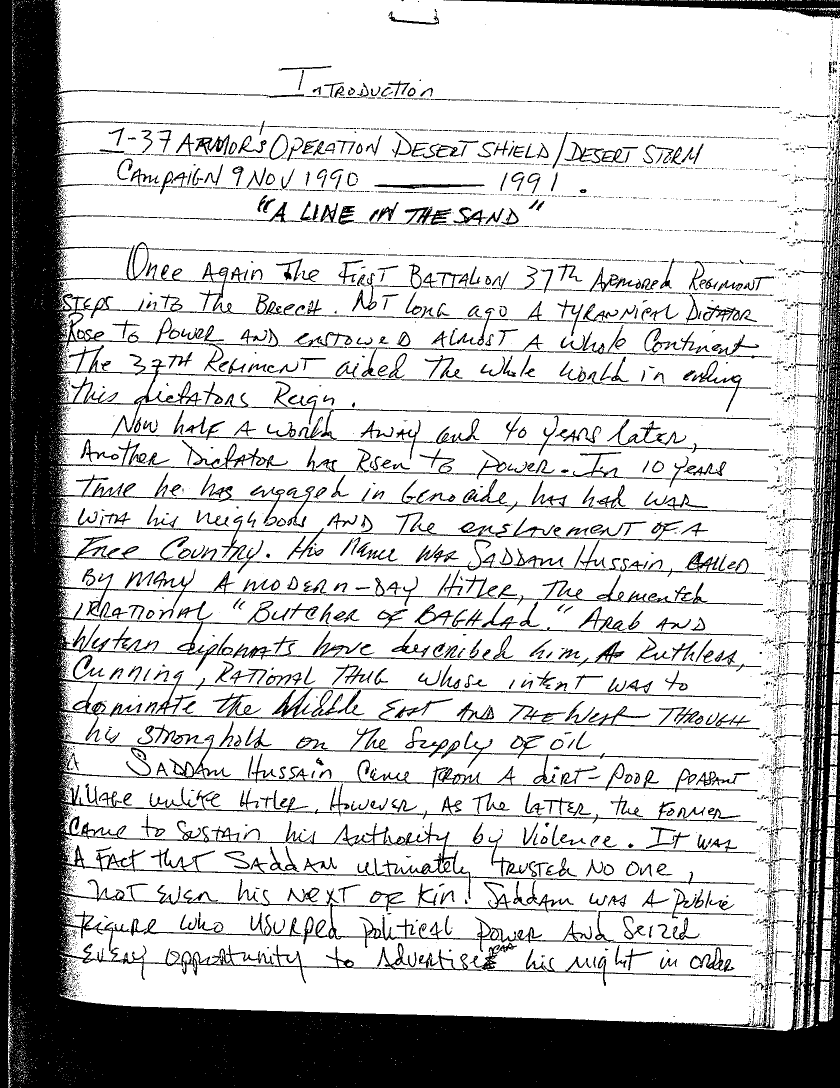 Introduction
1-37 ARMOR'S OPERATION DESERT SHIELD/DESERT STORM
CAMPAIGN 9 NOV 1990 ——— 1991.
"A LINE IN THE SAND"
Once Again The First BATTALION 37TH Armored Regiment
STEPS into The Breech. NOT long ago A tyrannical Dictator
Rose to Power AND Almost A Whole Continent.
The 37TH Regiment aided The whole World in ending
this dictators Reign.
Now half A World Away and 40 years later,
Another Dictator has Risen to Power. In 10 years
time he has engaged in Genocide, has had WAR
WITH his neighbors, AND The enslavement OF A
Free Country. His Name was SADDAM HUSSAIN, CALLED
By MANY A MODERN-DAY HITLER, The demented
IRRATIONAL "BUTCHER OF BAGHDAD." ARAB AND
Western diplomats have described him, As Ruthless,
Cunning, RATIONAL THUG whose intent was to
dominate the Middle East AND THE West THROUGH
his stronghold on The Supply OF oil,
SADDAM HUSSAIN Came From A dirt-Poor Peasant
Village unlike Hitler. However, As The LATTER, the FORMER
CAME to Sustain his Authority by Violence. It was
A FACT that SADDAM ultimately TRUSTED NO ONE,
NOT Even his NEXT OF Kin! Saddam was A Public
Figure who USURPED Political Power And Seized
Every opportunity to Advertise his might in order